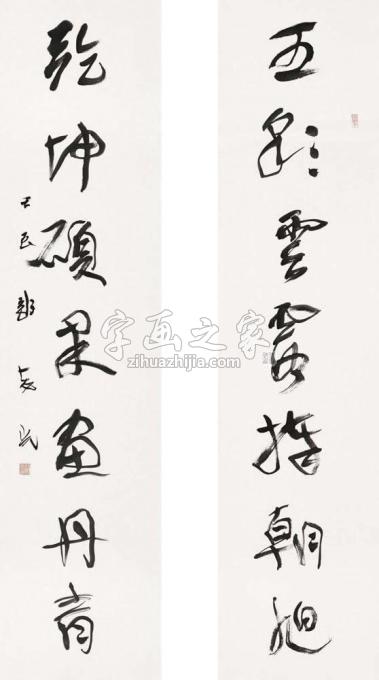 五彩雲霞捧朝旭
乾坤碩果畫丹青
壬辰
字画之家
zihuazhijia.com